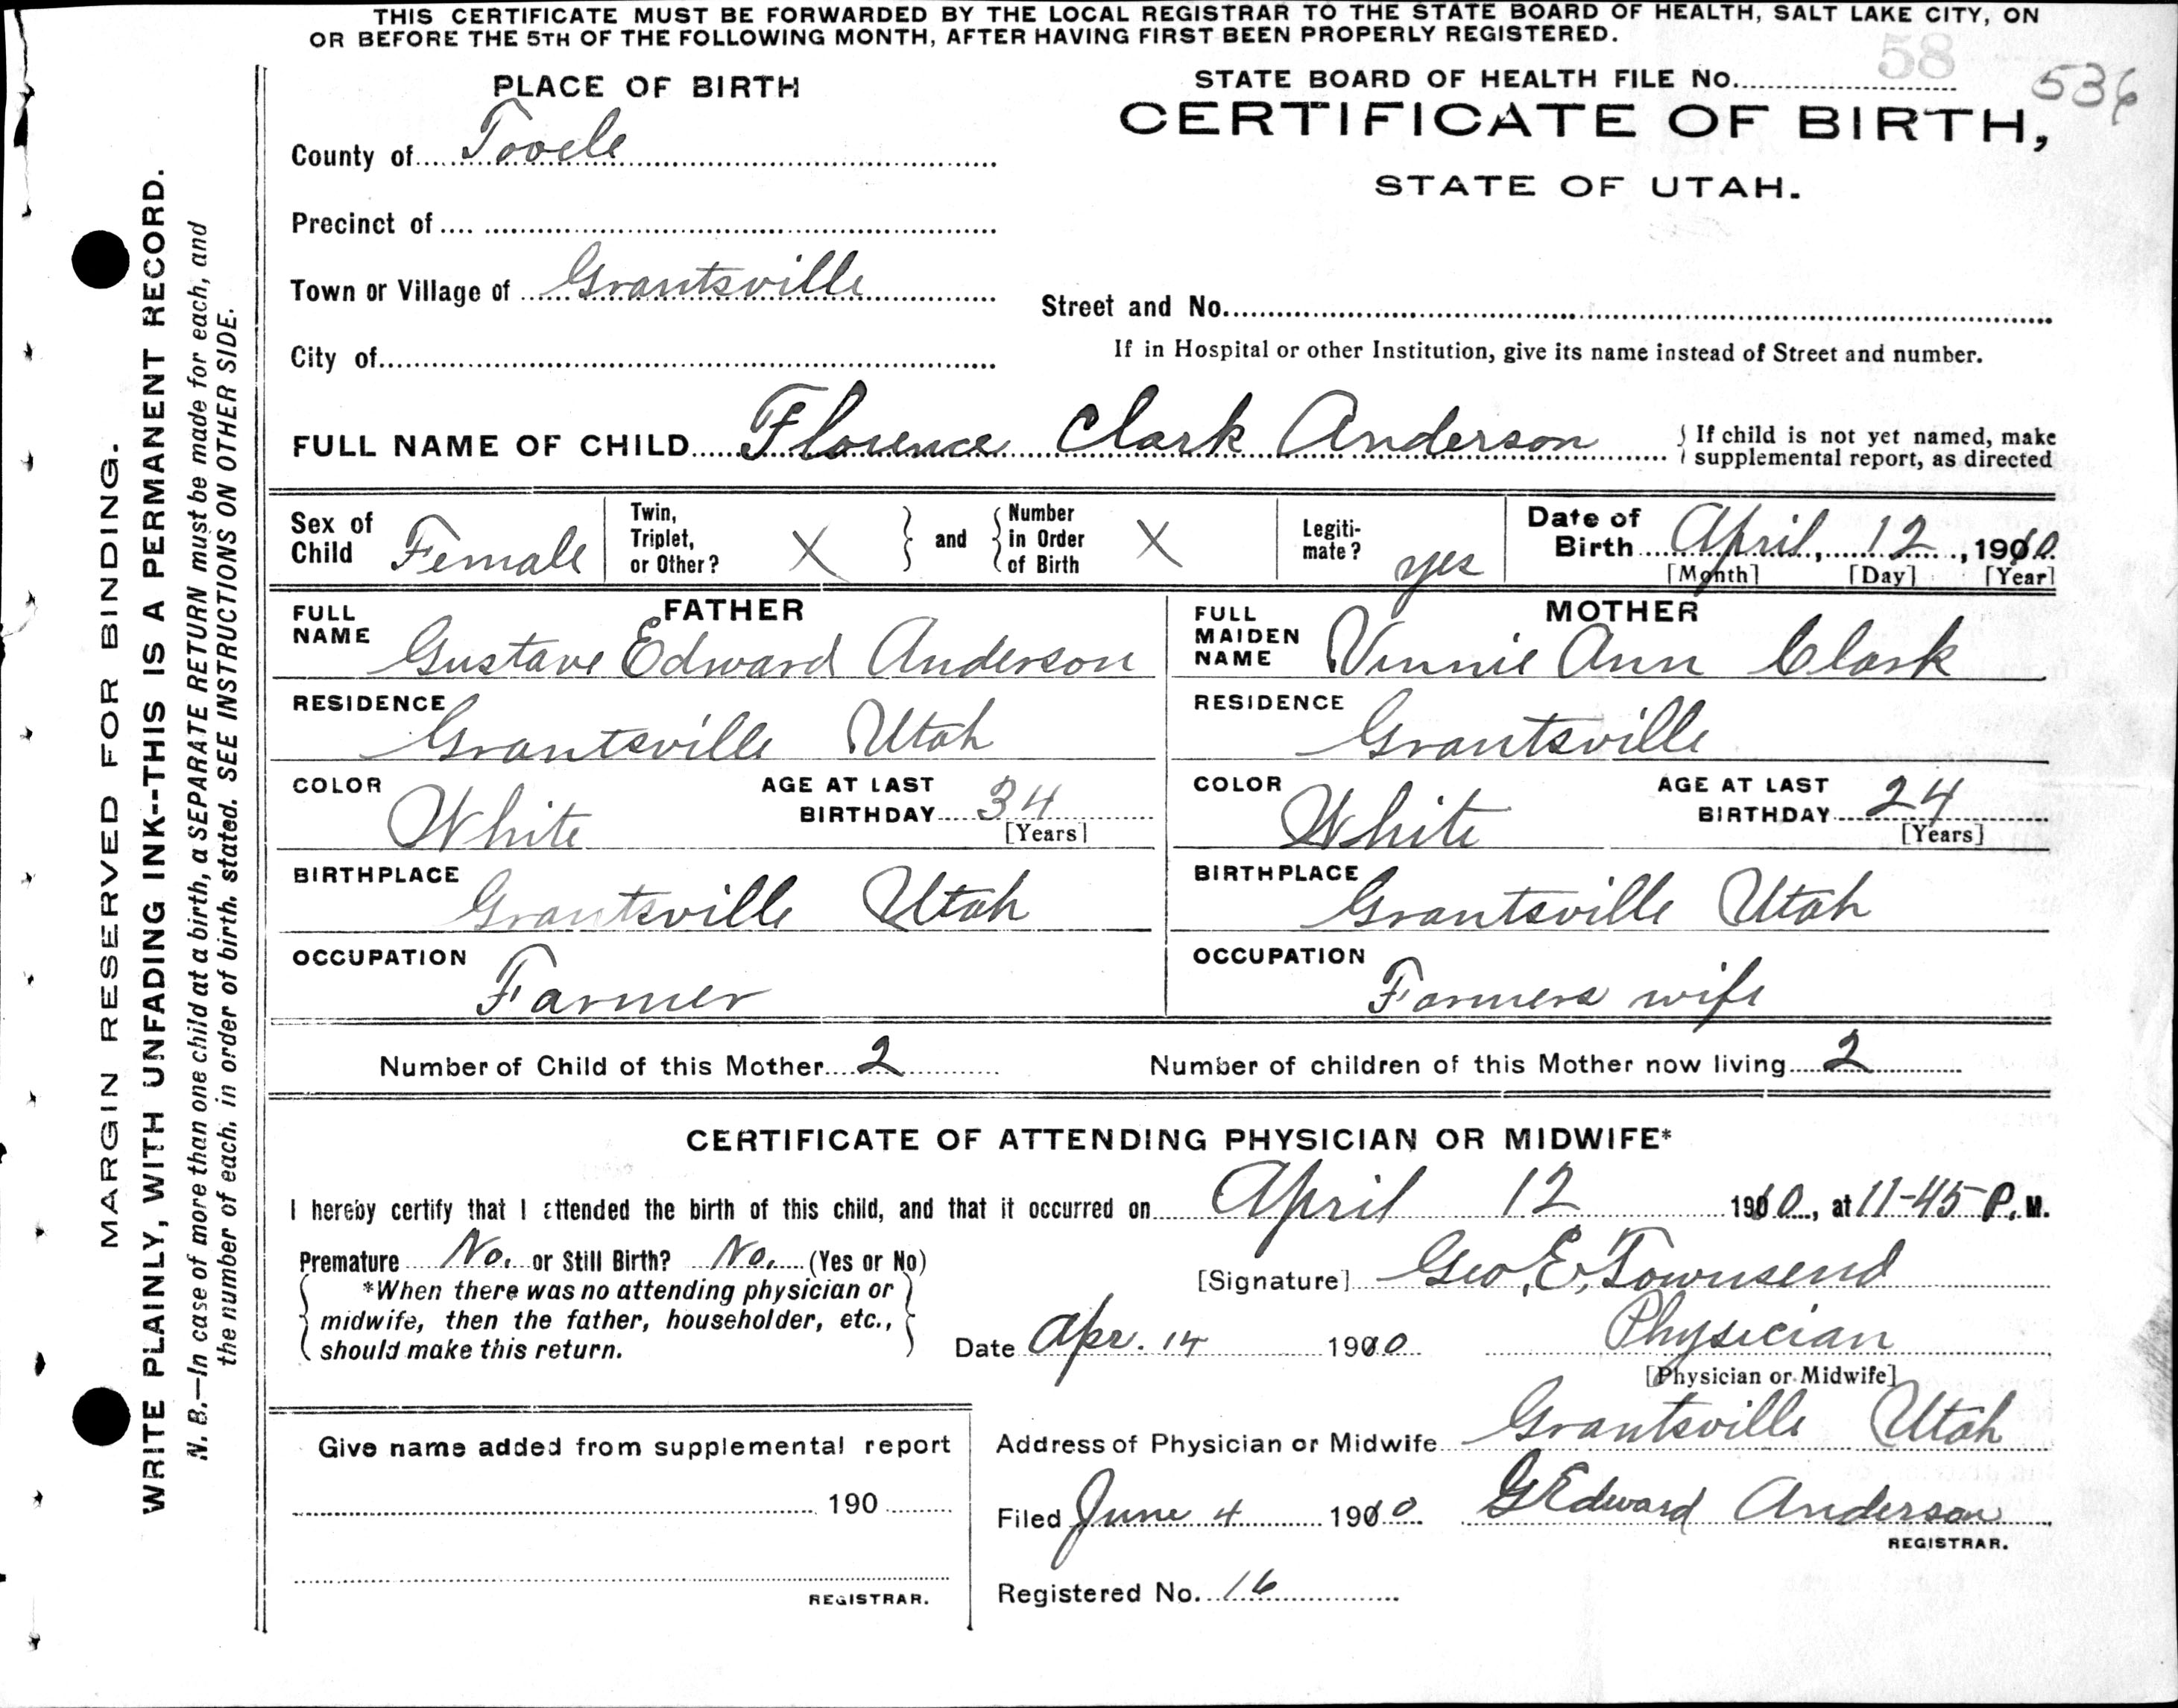 THIS CERTIFICATE MUST BE FORWARDED BY THE LOCAL REGISTRAR TO THE STATE BOARD OF HEALTH, SALT LAKE CITY, ON
OR BEFORE THE 5TH OF THE FOLLOWING MONTH, AFTER HAVING FIRST BEEN PROPERLY REGISTERED.
MARGIN RESERVED FOR BINDING.
WRITE PLAINLY, WITH UNFADING INK--THIS IS A PERMANENT RECORD.
N. B.—In case of more than one child at a birth, a SEPARATE RETURN must be made for each, and
the number of each, in order of birth, stated. SEE INSTRUCTIONS ON OTHER SIDE.
PLACE OF BIRTH
County of Tooele
Precinct of
Town or Village of Grantsville
City of
STATE BOARD OF HEALTH FILE No. 58 536
CERTIFICATE OF BIRTH,
STATE OF UTAH.
Street and No.
If in Hospital or other Institution, give its name instead of Street and number.
FULL NAME OF CHILD Florence Clark Anderson
If child is not yet named, make
supplemental report, as directed
Sex of Child Female
Twin, Triplet, or Other? X
and
Number in Order of Birth X
Legiti-mate? yes
Date of Birth April, 12, 1910
[Month] [Day] [Year]
FATHER
FULL NAME Gustave Edward Anderson
RESIDENCE Grantsville Utah
COLOR White
AGE AT LAST BIRTHDAY 34
[Years]
BIRTHPLACE Grantsville Utah
OCCUPATION Farmer
MOTHER
FULL MAIDEN NAME Vinnie Ann Clark
RESIDENCE Grantsville
COLOR White
AGE AT LAST BIRTHDAY 24
[Years]
BIRTHPLACE Grantsville Utah
OCCUPATION Farmers wife
Number of Child of this Mother 2
Number of children of this Mother now living 2
CERTIFICATE OF ATTENDING PHYSICIAN OR MIDWIFE*
I hereby certify that I attended the birth of this child, and that it occurred on April 12 1910, at 11-45 P. M.
Premature No. or Still Birth? No. (Yes or No)
*When there was no attending physician or
midwife, then the father, householder, etc.,
should make this return.
[Signature] Geo. E. Townsend
Date Apr. 14 1910
Physician
[Physician or Midwife]
Address of Physician or Midwife Grantsville Utah
Give name added from supplemental report
190
REGISTRAR.
Filed June 4 1910 G Edward Anderson
REGISTRAR.
Registered No. 16